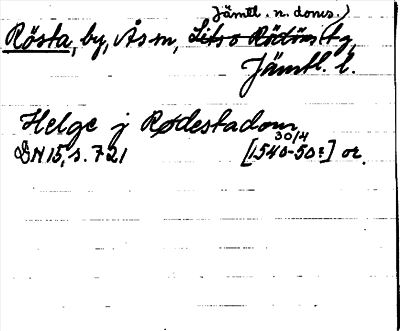 Jämtl. n. doms.)
Rösta, by, Ås sn, Lits o Rödöns tg,
Jämtl. l.
Helge j Rødestadom
30/4
DN 15, s. 721 [1540-50?] or.